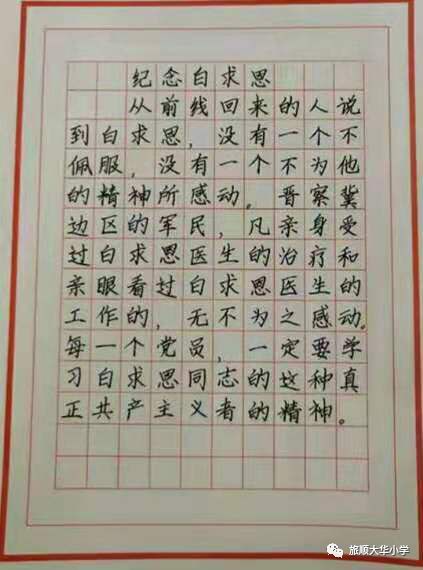 纪念白求恩
从前线回来的人说
到白求恩，没有一个不
佩服，没有一个不为他
的精神所感动。晋察冀
边区的军民，凡亲身受
过白求恩医生的治疗和
亲眼看过白求恩医生的
工作的，无不为之感动。
每一个党员，一定要学
习白求恩同志的这种真
正共产主义者的精神。
旅顺大华小学